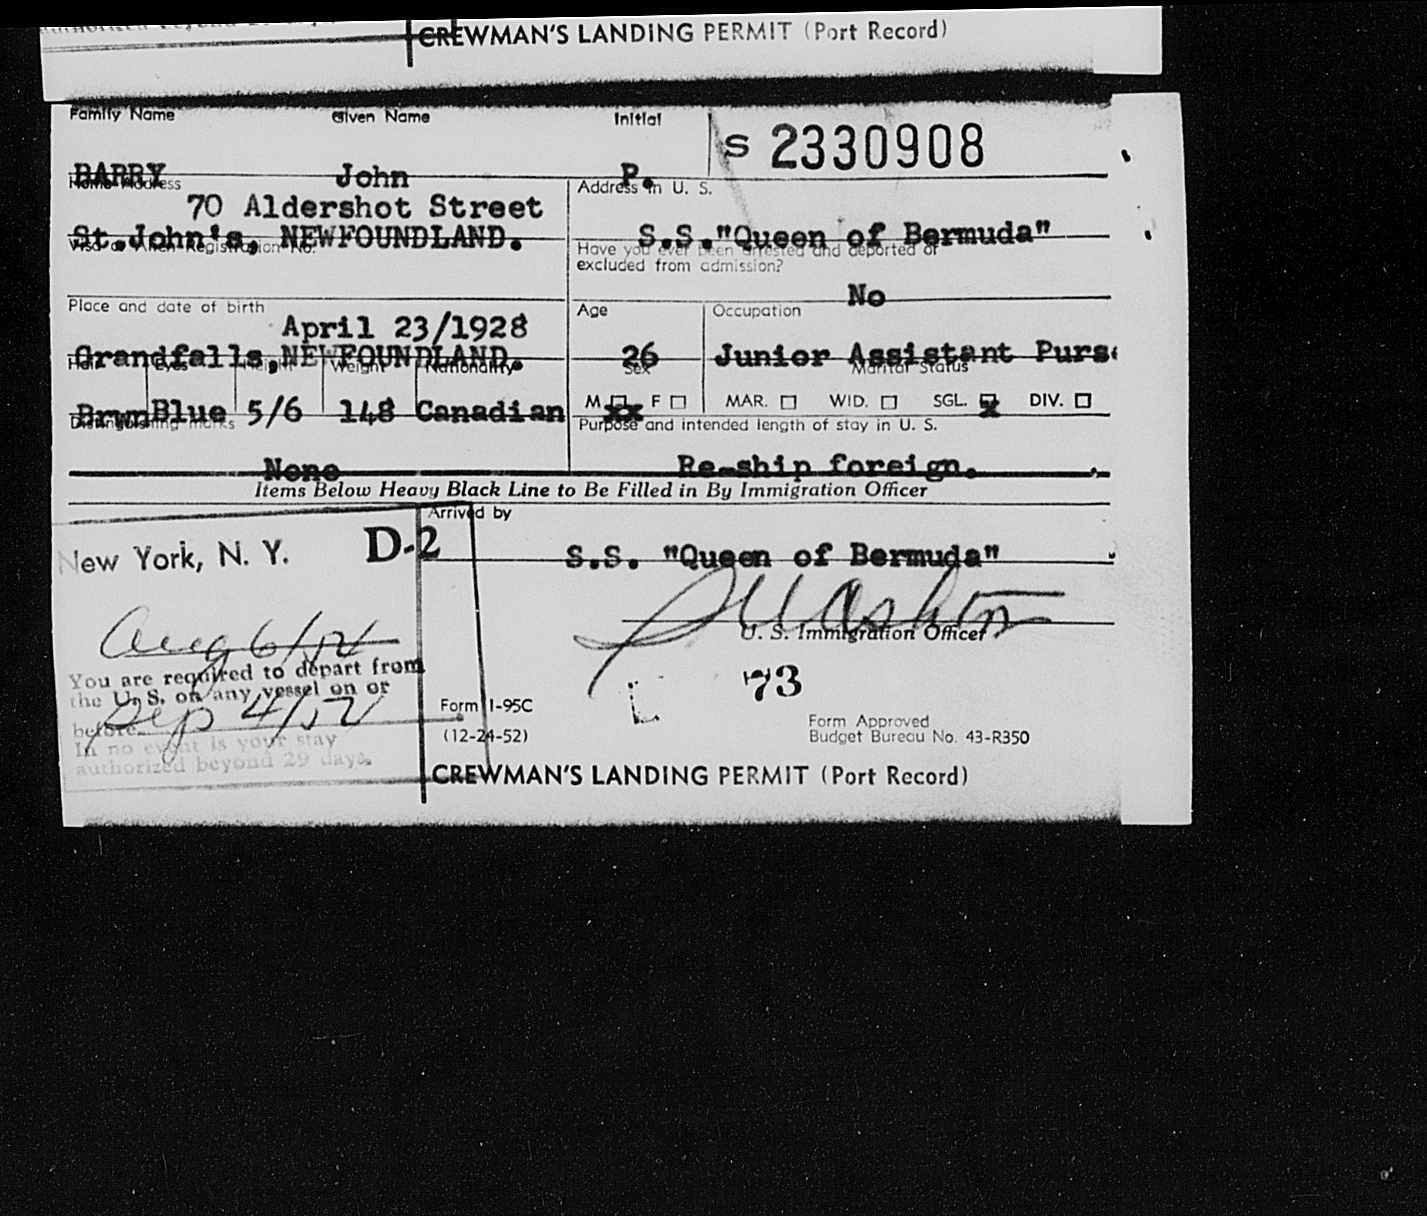 CREWMAN'S LANDING PERMIT (Port Record)
Family Name Given Name Initial
S 2330908
BARRY John P.
Home Address
Address in U. S.
70 Aldershot Street
St.John's, NEWFOUNDLAND.
S.S."Queen of Bermuda"
Visa or Alien Registration No.
Have you ever been arrested and deported or
excluded from admission?
No
Place and date of birth
Age
Occupation
April 23/1928
Grandfalls,NEWFOUNDLAND.
26
Junior Assistant Purs
Hair Eyes Height Weight Nationality
Sex
Marital Status
Brwn Blue 5/6 148 Canadian
M xx F
MAR. WID. SGL. x DIV.
Distinguishing marks
Purpose and intended length of stay in U. S.
None
Re-ship foreign.
Items Below Heavy Black Line to Be Filled in By Immigration Officer
Arrived by
New York, N. Y. D-2
S.S. "Queen of Bermuda"
Aug 6/54
U. S. Immigration Officer
You are required to depart from
the U. S. on any vessel on or
before Sep 4/54
In no event is your stay
authorized beyond 29 days.
73
Form I-95C
(12-24-52)
Form Approved
Budget Bureau No. 43-R350
CREWMAN'S LANDING PERMIT (Port Record)